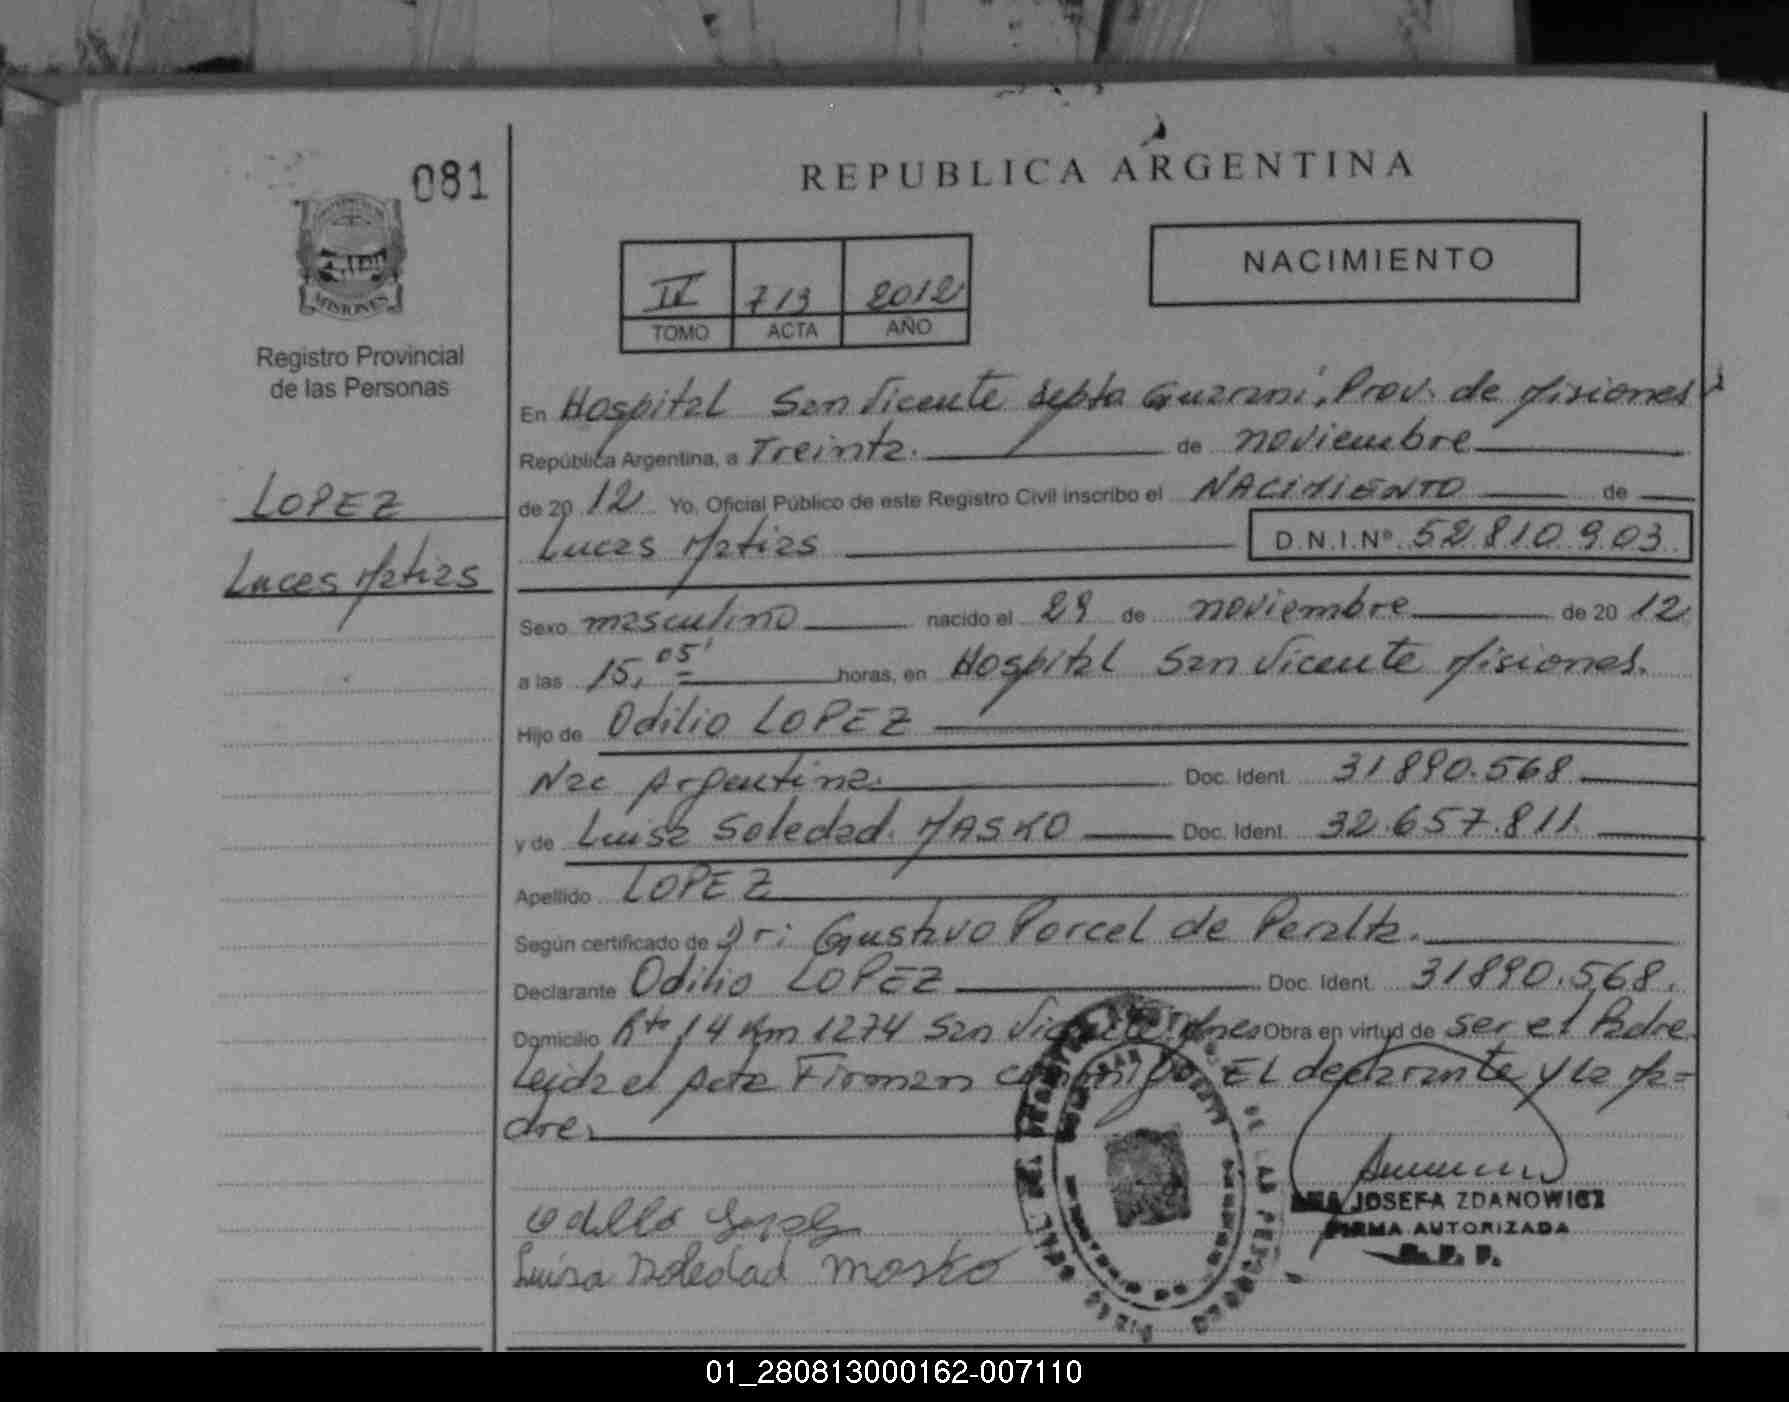 081
REPUBLICA ARGENTINA
MISIONES
Registro Provincial
de las Personas
IV 713 2012
TOMO ACTA AÑO
NACIMIENTO
En Hospital San Vicente Depto Guarani, Prov. de Misiones
República Argentina, a Treinta. de noviembre
de 20 12 Yo, Oficial Público de este Registro Civil inscribo el NACIMIENTO de
LOPEZ
Lucas Matias
Lucas Matias D.N.I.Nº 52 810 903
Sexo masculino nacido el 29 de noviembre de 20 12
a las 15,05' horas, en Hospital San Vicente Misiones.
Hijo de Odilio LOPEZ
Nac Argentina. Doc. Ident. 31890.568
y de Luisa Soledad. MASKO Doc. Ident. 32.657.811
Apellido LOPEZ
Según certificado de Dr: Gustavo Porcel de Peralta.
Declarante Odilio LOPEZ Doc. Ident. 31890.568.
Domicilio Rta 14 Km 1274 San Vicente Mnes Obra en virtud de ser el Padre
Leida el Acta Firman conmigo EL declarante y la Ma=
dre.
Odilio Lopez
Luisa Soledad Masko
JOSEFA ZDANOWICZ
FIRMA AUTORIZADA
R. P. P.
DE LAS PERSONAS
01_280813000162-007110